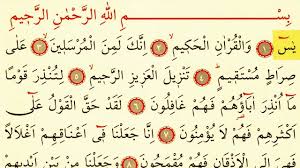 بِسْمِ اللّٰهِ الرَّحْمٰنِ الرَّحِيمِ
يٰسٓ ﴿١﴾ وَالْقُرْاٰنِ الْحَكِيمِ ﴿٢﴾ اِنَّكَ لَمِنَ الْمُرْسَلِينَ ﴿٣﴾ عَلٰى
صِرَاطٍ مُسْتَقِيمٍ ﴿٤﴾ تَنْزِيلَ الْعَزِيزِ الرَّحِيمِ ﴿٥﴾ لِتُنْذِرَ قَوْمًا
مَٓا اُنْذِرَ اٰبَٓاؤُ۬هُمْ فَهُمْ غَافِلُونَ ﴿٦﴾ لَقَدْ حَقَّ الْقَوْلُ عَلٰٓى
اَكْثَرِهِمْ فَهُمْ لَا يُؤْمِنُونَ ﴿٧﴾ اِنَّا جَعَلْنَا فِٓي اَعْنَاقِهِمْ اَغْلَالًا
فَهِيَ اِلَى الْاَذْقَانِ فَهُمْ مُقْمَحُونَ ﴿٨﴾ وَجَعَلْنَا مِنْ بَيْنِ